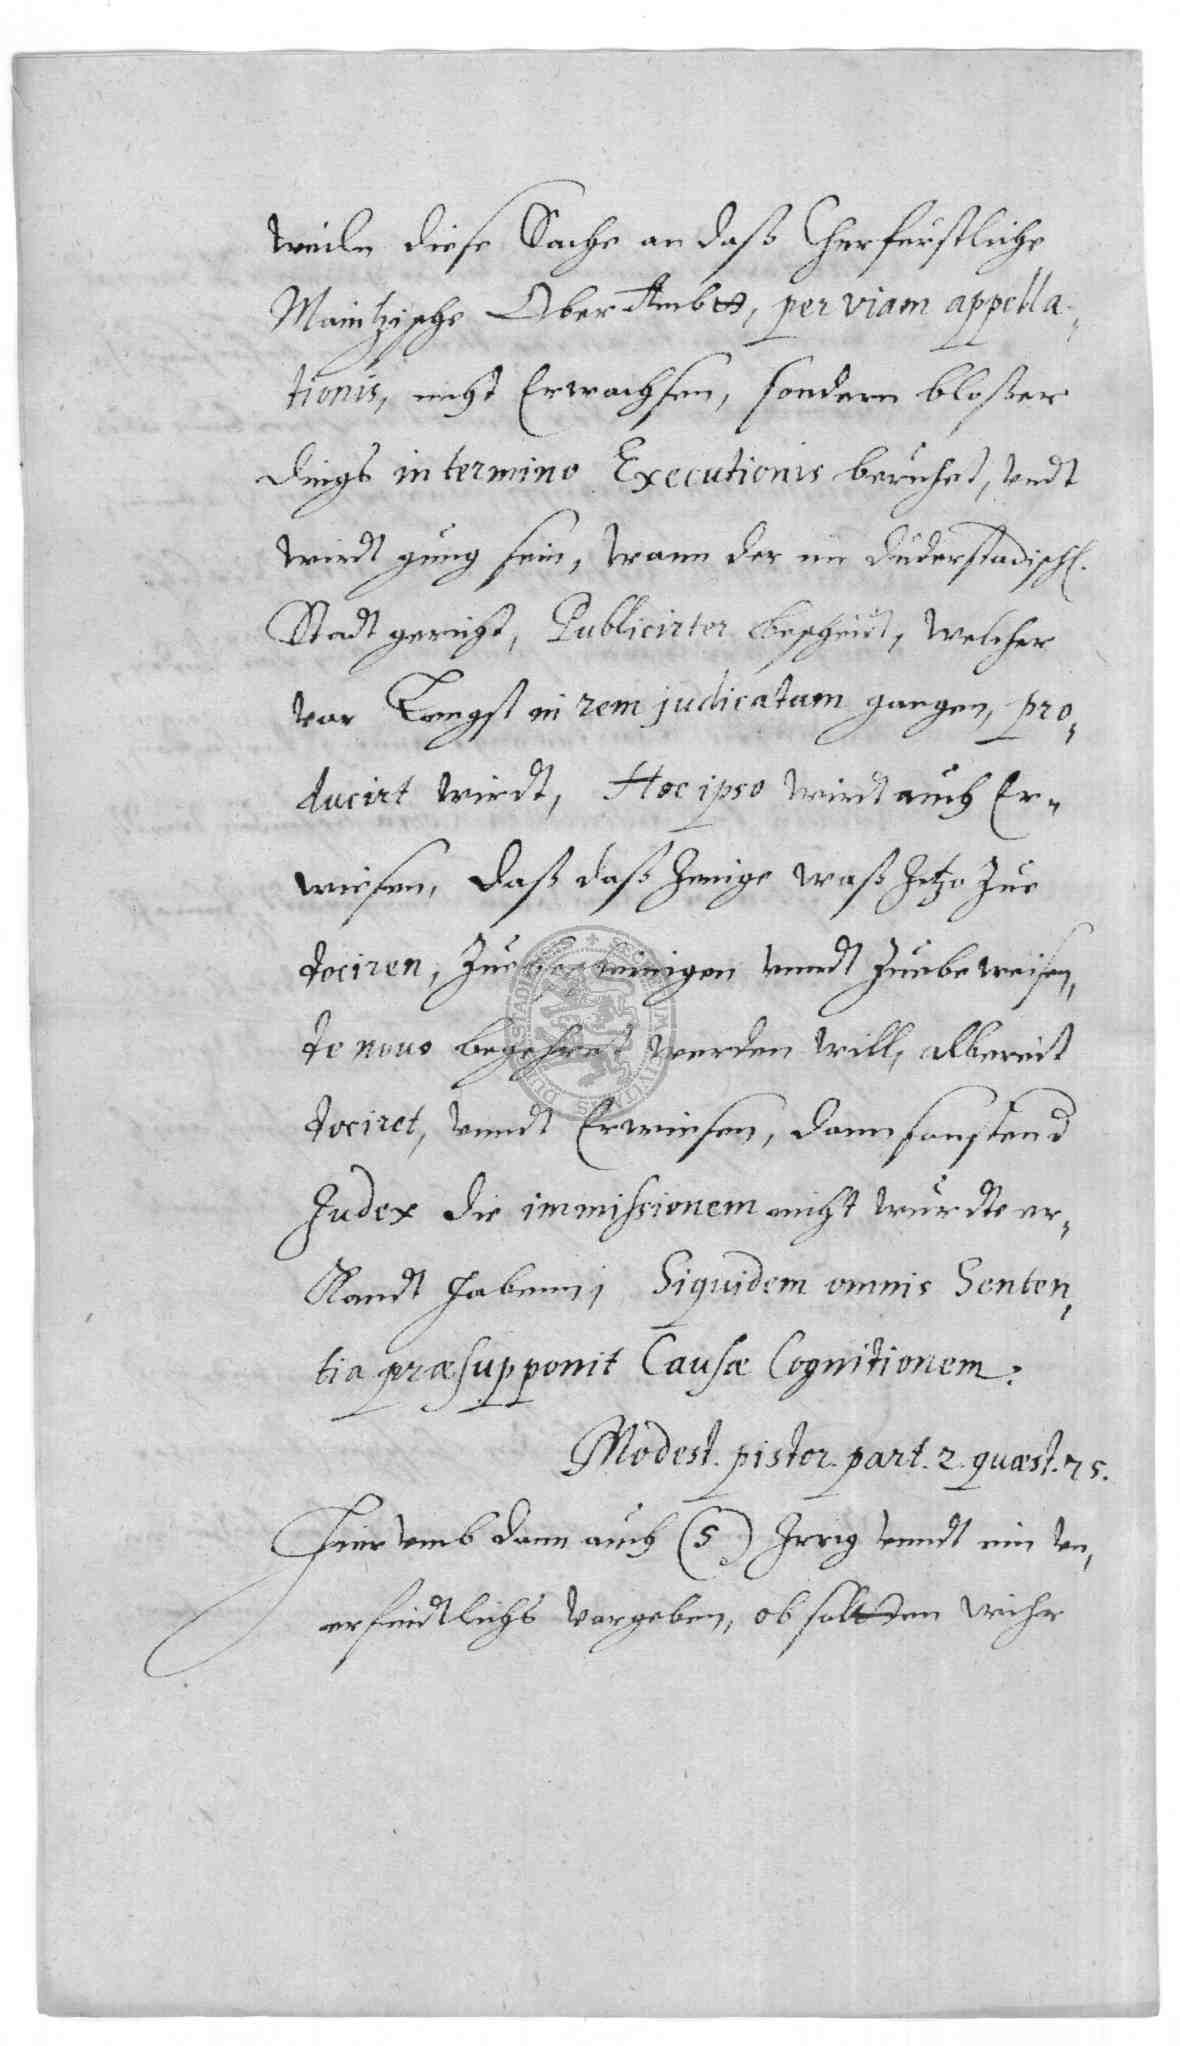 weiln diese Sache an daß Churfürstliche
Maintzische Ober Ambtt, per viam appella-
tionis, nicht Erwachsen, sondern bloßer
dings in termino Executionis beruhet, undt
wirdt gnug sein, wann der im duderstadisch.
Stadtgericht, Publicirter bescheidt, welcher
vor Lengst in rem judicatam gangen, pro-
ducirt wirdt, Hoc ipso wirdt auch Er-
wiesen, daß daß Jenige waß Jetzo Zue
dociren, Zue undt Zuebeweisen,
de novo begehret werden will, albereit
dociret, undt Erwiesen, dann sonsten d
Judex die immissionem nicht würdte er-
Kandt haben; Siquidem omnis Senten-
tia præsupponit Causæ Cognitionem:
Modest. pistor. part. 2. quæst. 75.
Hierumb dann auch (5) Irrig undt ein un-
erfindtlichs vorgeben, ob sollten wihr